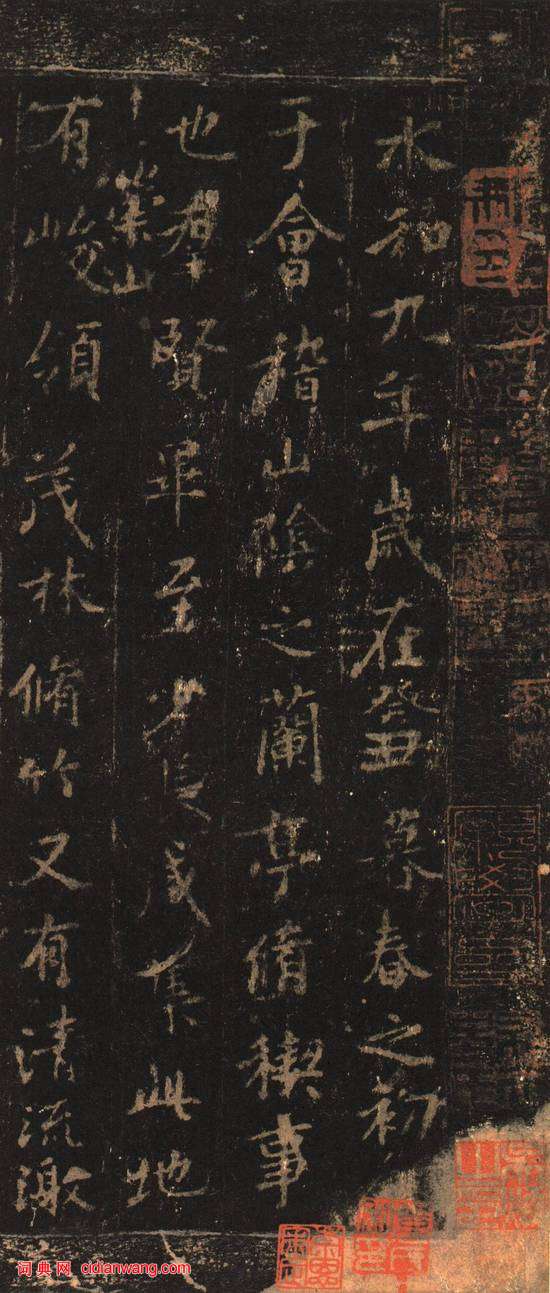 永和九年歲在癸丑暮春之初
于會稽山陰之蘭亭脩禊事
也羣賢畢至少長咸集此地
崇山
有峻領茂林脩竹又有清流激
词典网 cidianwang.com